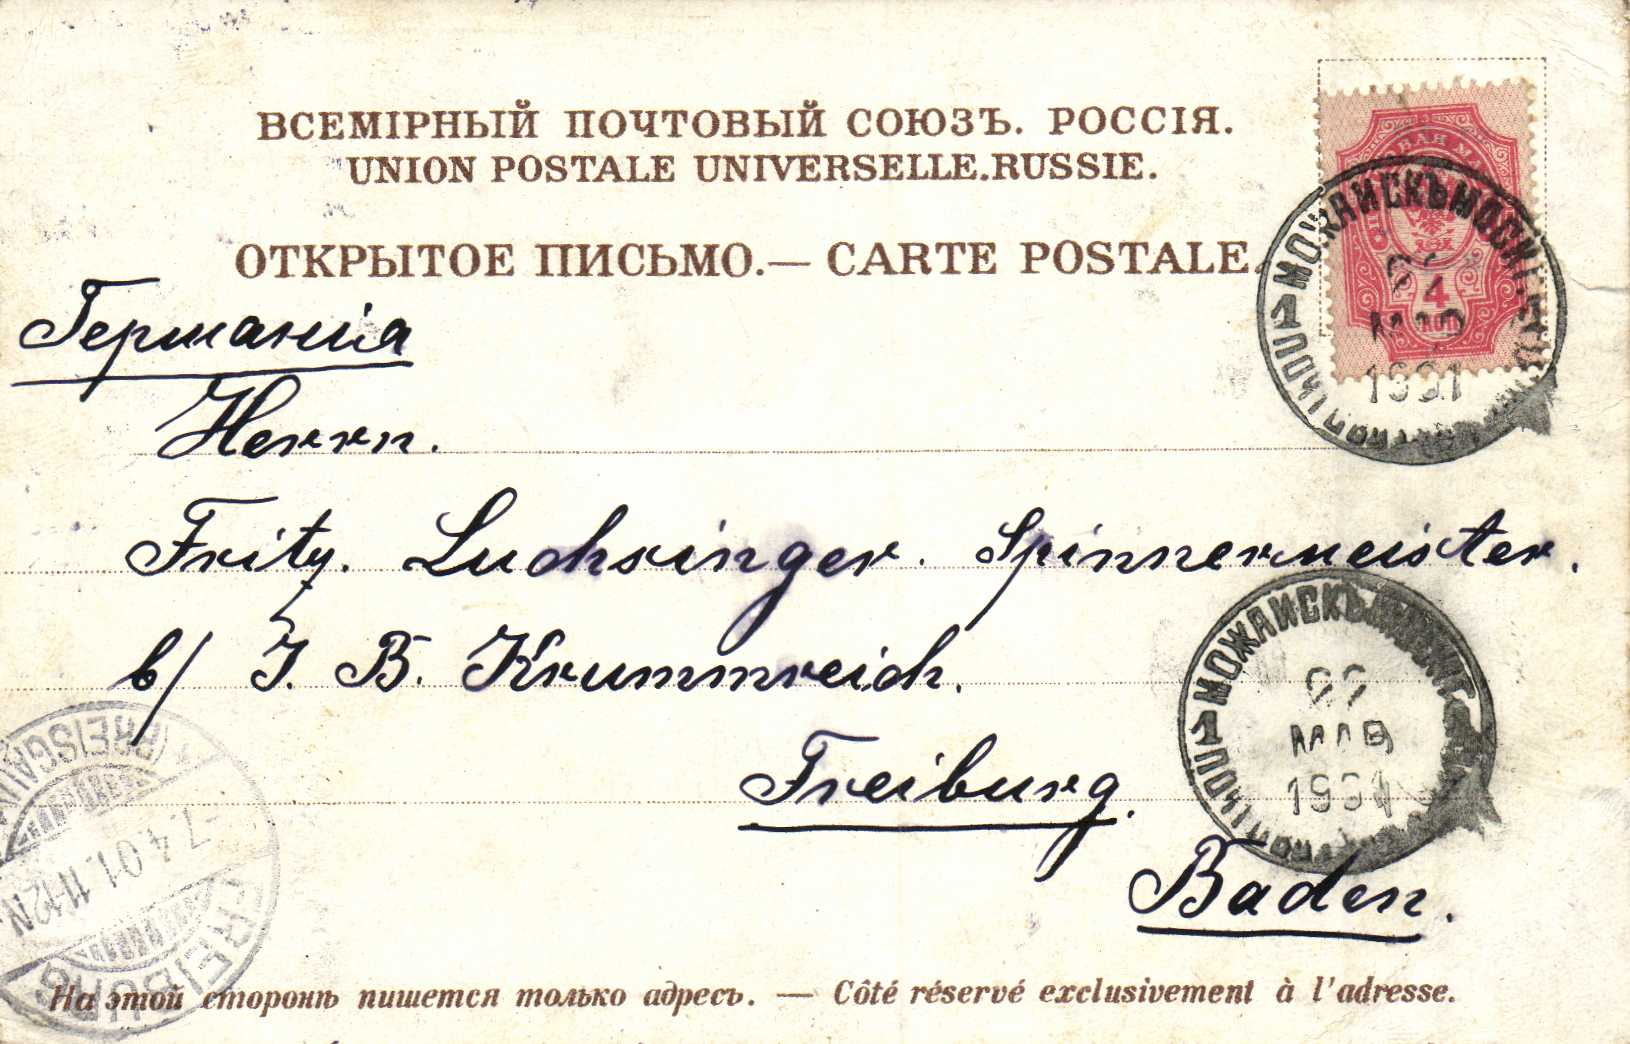 ВСЕМІРНЫЙ ПОЧТОВЫЙ СОЮЗЪ. РОССІЯ.
UNION POSTALE UNIVERSELLE.RUSSIE.
ОТКРЫТОЕ ПИСЬМО.— CARTE POSTALE.
4
КОП
МОЖАЙСКЪ МОСК. Г.
22
МАР
1901
1
Германія
Herrn.
Fritz. Luchsinger. Spinnermeister.
b/ J. B. Krummreich.
Freiburg.
Baden.
МОЖАЙСКЪ
22
МАР
1901
1
(BREISGAU)
-7.4.01.11-12N
FREIBURG
На этой сторонѣ пишется только адресъ. — Côté réservé exclusivement à l'adresse.